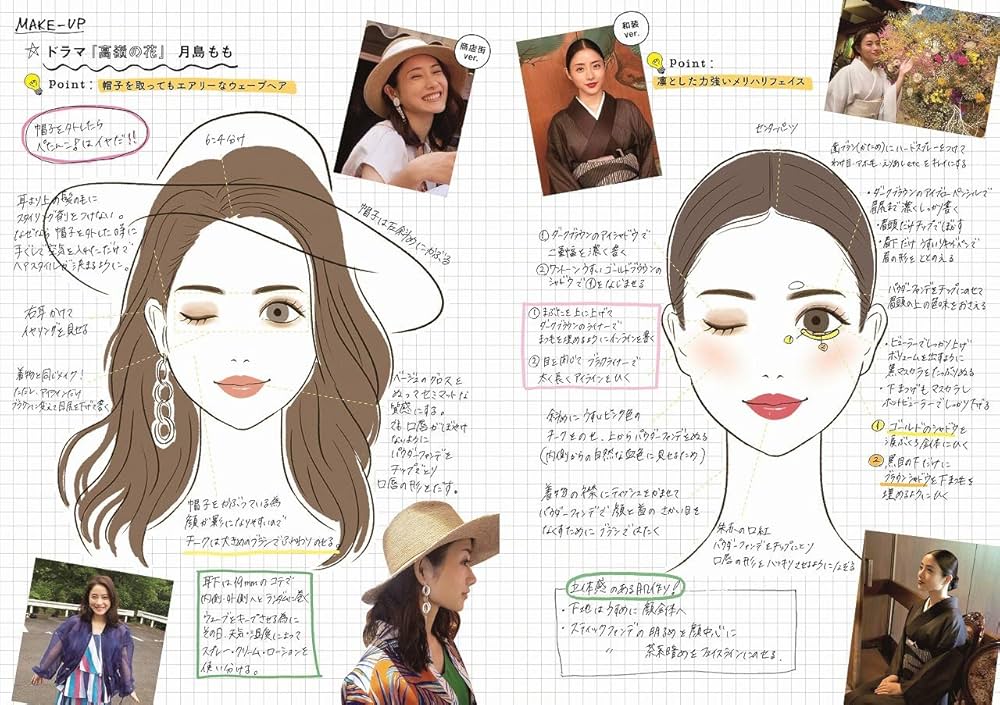 MAKE-UP
☆ ドラマ『高嶺の花』 月島もも
Point: 帽子を取ってもエアリーなウェーブヘア
商店街
ver.
帽子を外したら
ぺたんこはイヤだ!!
6:4分け
耳より上の髪の毛に
スタイリング剤をつけない。
なぜなら帽子を外した時に
手ぐしで空気を入れただけで
ヘアスタイルが決まるように。
帽子は左斜めにかぶる
右耳かけて
イヤリングを見せる
着物と同じメイク!
ベージュのグロスを
ぬってセミマットな
質感にする。
口唇がぼやけ
ないように
パウダーファンデを
チップでとり
口唇の形をたす。
帽子をかぶっている為
顔が影になりやすいので
チークは大きめのブラシでふんわりのせる。
耳下は19mmのコテで
内側・外側へとランダムに巻く
ウェーブをキープさせる為に
その日、天気・湿度によって
スプレー・クリーム・ローションを
使い分ける。
和装
ver.
Point:
凛とした力強いメリハリフェイス
センターパーツ
歯ブラシ(かため)にハードスプレーをつけて
・ダークブラウンのアイブローペンシルで
眉尻まで濃くしっかり書く
・眉頭だけチップでぼかす
眉の形をととのえる
パウダーファンデをチップにのせて
眉頭の上の色味をおさえる
①ダークブラウンのアイシャドウで
二重幅を濃く書く
②ワントーンうすいゴールドブラウンの
シャドウで①をなじませる
①まぶたを上に上げて
ダークブラウンのライナーで
まつ毛を埋めるようにインラインを書く
②目を閉じてブラックライナーで
太く長くアイラインをひく
・ビューラーでしっかり上げ
ボリュームを出すように
黒マスカラをたっぷりぬる
・下まつげもマスカラし
ホットビューラーでしっかり下げる
①ゴールドのシャドウを
涙ぶくろ全体にひく
②黒目の下だけに
ブラウンシャドウを下まつ毛を
埋めるようにひく
斜めにうすいピンク色の
チークをのせ、上からパウダーファンデをぬる
(内側からの自然な血色に見せるため)
着物の襟にティッシュをかませて
パウダーファンデで顔と首のさかい目を
なくすためにブラシではたく
朱赤の口紅
パウダーファンデをチップにとり
口唇の形をハッキリさせるようにふちどる
立体感のある肌作り!
・下地はうすめに顔全体へ
・スティックファンデの明るめを顔中心に
〃 茶系暗めをフェイスラインにのせる。